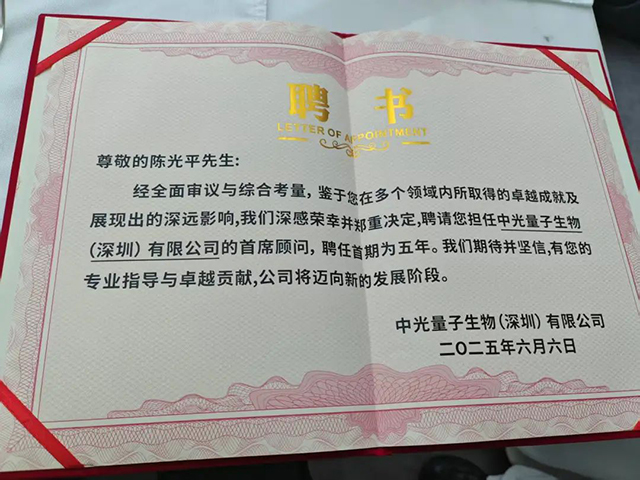 聘 书
LETTER OF APPOINTMENT
尊敬的陈光平先生:
经全面审议与综合考量, 鉴于您在多个领域内所取得的卓越成就及
展现出的深远影响,我们深感荣幸并郑重决定,聘请您担任中光量子生物
(深圳) 有限公司的首席顾问, 聘任首期为五年。我们期待并坚信,有您的
专业指导与卓越贡献,公司将迈向新的发展阶段。
中光量子生物(深圳) 有限公司
二〇二五年六月六日